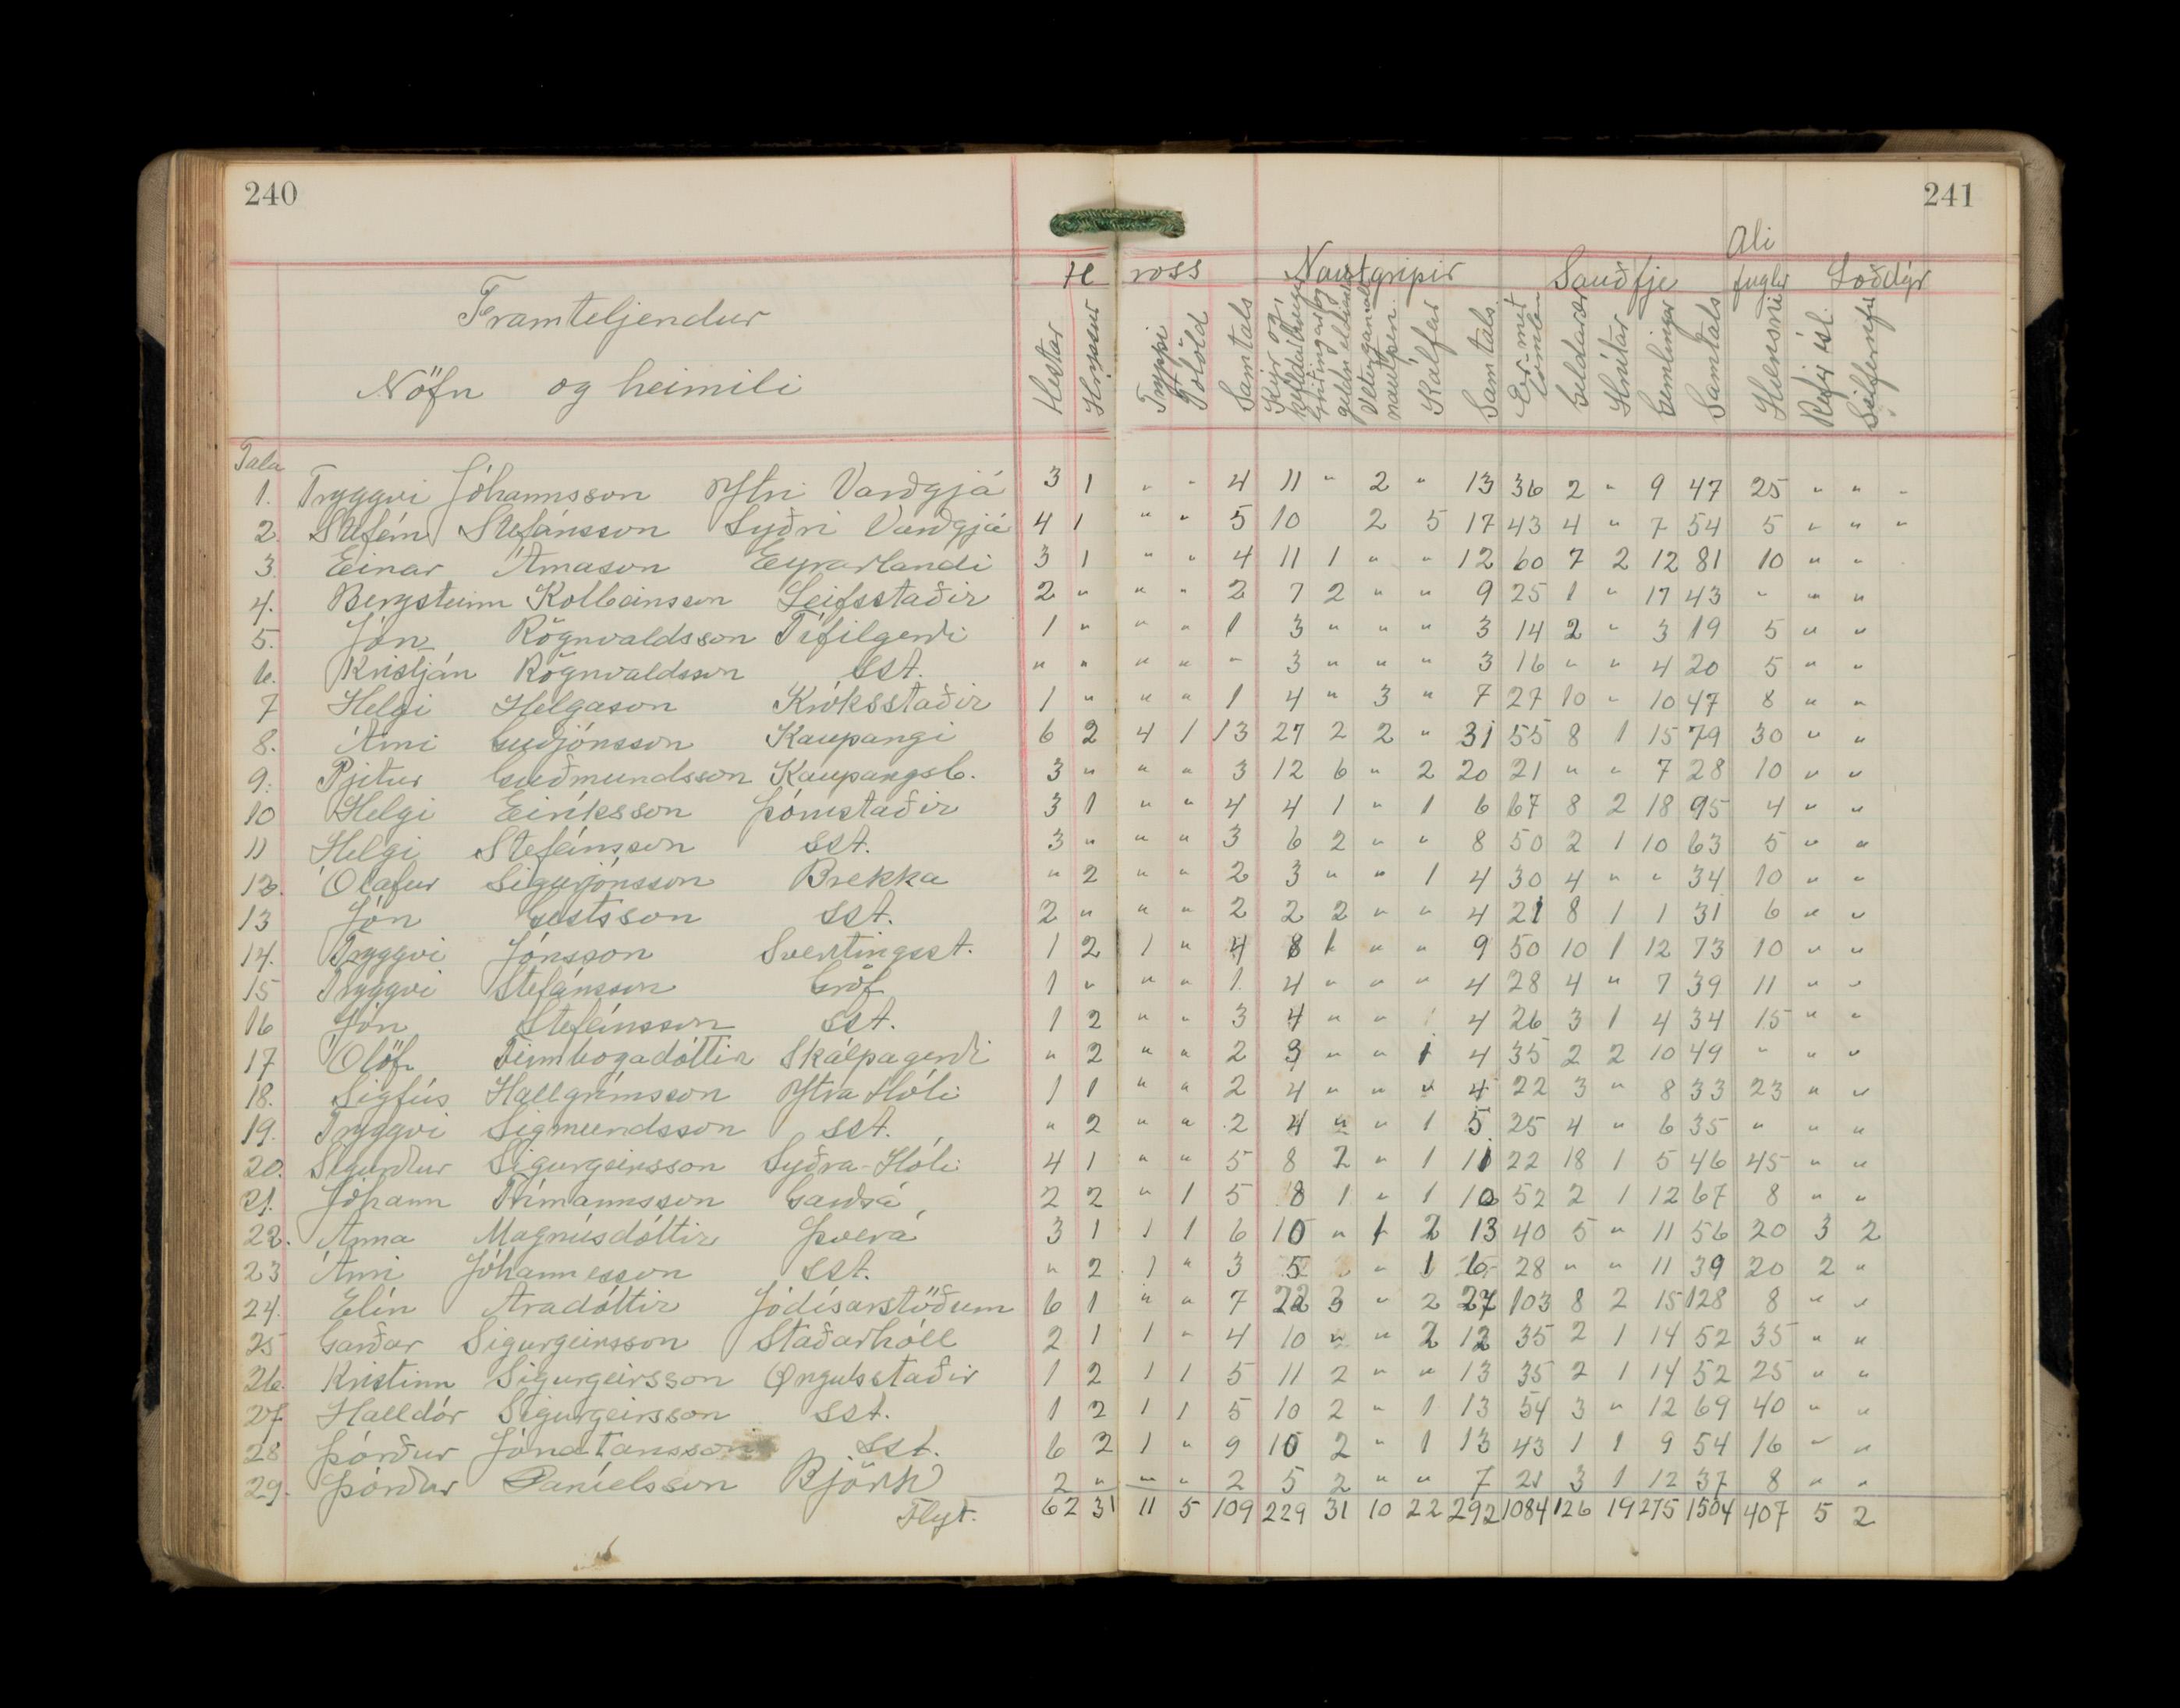 240
241
Framteljendur
Nöfn og heimili
H ross Nautgripir Sauðfje Ali fuglar Loðdýr
Hestar Hryssur Tryppi Folöld Samtals Kýr og kelfdar kvígur Kálfar Samtals Ær með lömbum Geldar ær Hrútar Gemlingar Samtals Hænsni Refir ísl. Silfurrefir
Tala
1. Tryggvi Jóhannsson Ytri Varðgjá 3 1 " " 4 11 " 2 " 13 36 2 " 9 47 25 " " "
2. Stefán Stefánsson Syðri Varðgjá 4 1 " " 5 10 2 5 17 43 4 " 7 54 5 " " "
3 Einar Árnason Eyrarlandi 3 1 " " 4 11 1 " " 12 60 7 2 12 81 10 " "
4. Bergsteinn Kolbeinsson Leifsstaðir 2 " " " 2 7 2 " " 9 25 1 " 17 43 " " "
5. Jón Rögnvaldsson Fífilgerði 1 " " " 1 3 " " " 3 14 2 " 3 19 5 " "
6. Kristján Rögnvaldsson sst. " " " " " 3 " " " 3 16 " " 4 20 5 " "
7 Helgi Helgason Króksstaðir 1 " " " 1 4 " 3 " 7 27 10 " 10 47 8 " "
8. Árni Guðjónsson Kaupangi 6 2 4 1 13 27 2 2 " 31 55 8 1 15 79 30 " "
9. Pjetur Guðmundsson Kaupangsb. 3 " " " 3 12 6 " 2 20 21 " " 7 28 10 " "
10 Helgi Eiríksson Þórustaðir 3 1 " " 4 4 1 " 1 6 67 8 2 18 95 4 " "
11 Helgi Stefánsson sst. 3 " " " 3 6 2 " " 8 50 2 1 10 63 5 " "
12. Ólafur Sigurjónsson Brekka " 2 " " 2 3 " " 1 4 30 4 " " 34 10 " "
13 Jón Gestsson sst. 2 " " " 2 2 2 " " 4 21 8 1 1 31 6 " "
14. Tryggvi Jónsson Svertingsst. 1 2 1 " 4 8 1 " " 9 50 10 1 12 73 10 " "
15 Tryggvi Stefánsson Gröf 1 " " " 1 4 " " " 4 28 4 " 7 39 11 " "
16 Jón Stefánsson sst. 1 2 " " 3 4 " " 4 26 3 1 4 34 15 " "
17 Ólöf Finnbogadóttir Skálpagerði " 2 " " 2 3 " " 1 4 35 2 2 10 49 " " "
18. Sigfús Hallgrímsson Ytra Hóli 1 1 " " 2 4 " " " 4 22 3 " 8 33 23 " "
19. Tryggvi Sigmundsson sst. " 2 " " 2 4 " " 1 5 25 4 " 6 35 " " "
20. Sigurður Sigurgeirsson Syðra-Hóli 4 1 " " 5 8 2 " 1 11 22 18 1 5 46 45 " "
21. Jóhann Frímannsson Garðsá 2 2 " 1 5 8 1 " 1 10 52 2 1 12 67 8 " "
22. Anna Magnúsdóttir Þverá 3 1 1 1 6 10 " 1 2 13 40 5 " 11 56 20 3 2
23 Árni Jóhannesson sst. " 2 1 " 3 5 " 1 6 28 " " 11 39 20 2 "
24. Elín Aradóttir Jódísarstöðum 6 1 " " 7 22 3 " 2 27 103 8 2 15 128 8 " "
25 Garðar Sigurgeirsson Staðarhóll 2 1 1 " 4 10 " " 2 12 35 2 1 14 52 35 " "
26. Kristinn Sigurgeirsson Öngulsstaðir 1 2 1 1 5 11 2 " " 13 35 2 1 14 52 25 " "
27 Halldór Sigurgeirsson sst. 1 2 1 1 5 10 2 " 1 13 54 3 " 12 69 40 " "
28 Þórður Jónatansson sst. 6 2 1 " 9 10 2 " 1 13 43 1 1 9 54 16 " "
29. Þórður Daníelsson Björk 2 " " " 2 5 2 " " 7 21 3 1 12 37 8 " "
Flyt. 62 31 11 5 109 229 31 10 22 292 1084 126 19 275 1504 407 5 2